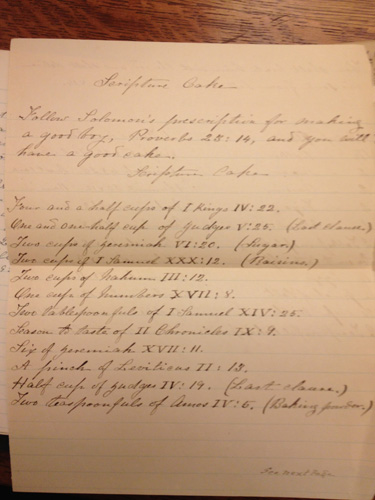 Scripture Cake
Follow Solomon's prescription for making
a good boy, Proverbs 23:14, and you will
have a good cake.
Scripture Cake
Four and a half cups of I Kings IV:22.
One and one half cup of Judges V:25. (Last clause.)
Two cups of Jeremiah VI:20. (Sugar.)
Two cups of I Samuel XXX:12. (Raisins.)
Two cups of Nahum III:12.
One cup of Numbers XVII:8.
Two tablespoonfuls of I Samuel XIV:25.
Season to taste of II Chronicles IX:9.
Six of Jeremiah XVII:11.
A pinch of Leviticus II:13.
Half cup of Judges IV:19. (Last clause.)
Two teaspoonfuls of Amos IV:5. (Baking powder.)
See next Page